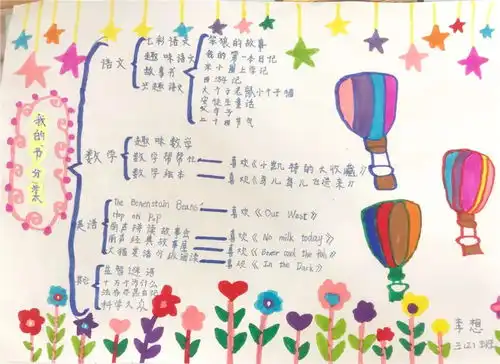 我的书分类
语文
七彩语文
趣味语文
故事书
笨狼的故事
我的第一本日记
米小圈上学记
西游记
大个子老鼠小个子猫
安徒生童话
二十四节气
数学
趣味数学
数学帮帮忙 喜欢《小凯特的大收藏》
数学绘本 喜欢
英语
the Berenstain Bears 喜欢《Out West》
Hop on Pop
丽声拼读故事会 喜欢《No milk today》
丽声经典故事屋 喜欢
大猫英语分级阅读 喜欢《In the Dark》
其他
益智谜语
十万个为什么
科学大众
李想
三(2)班